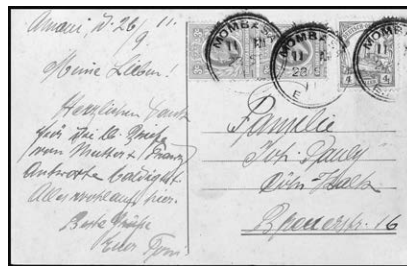 Amani, d. 26/11.
9.
Meine Lieben!
Herzlichen Dank
für die
von Mutter +
Antworte baldigst.
Alles wohlauf hier.
Beste Grüße
Euer Toni
MOMBASA
MOMBASA
MOMBASA
Familie
Jos. Pauly
Cöln-Kalk
Breuerstr. 16